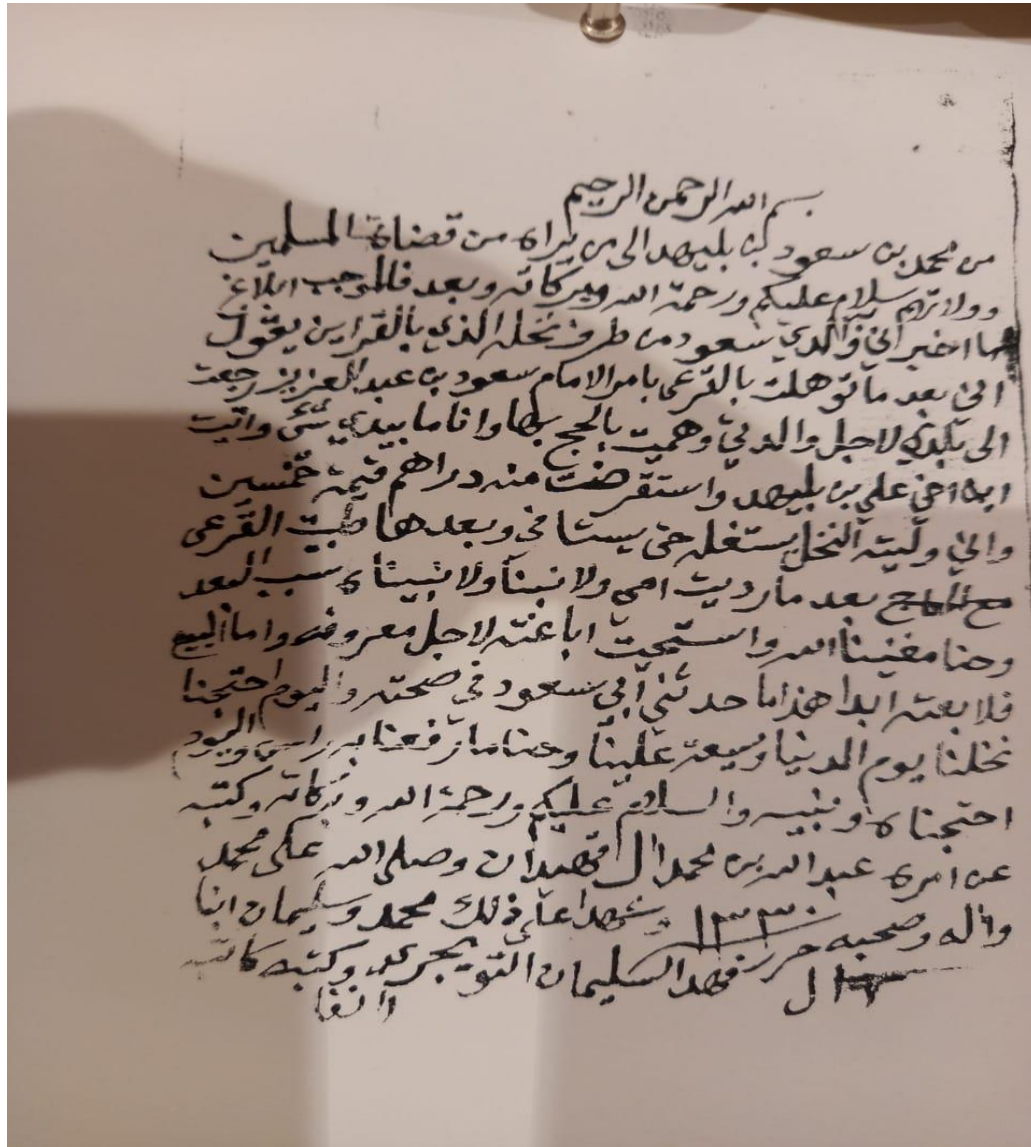 بسم الله الرحمن الرحيم
من محمد بن سعود بن بليهد الى من يراه من قضاة المسلمين
وولاتهم سلام عليكم ورحمة الله وبركاته وبعد فالموجب ابلاغ
ما اخبراني والدي سعود من طرف نخله الذي بالقراين يقول
اني بعد ما توهلت بالقرعى بامر الامام سعود بن عبد العزيز رجعت
الى بلدي لاجل والدتي وهميت بالحج بها وانا ما بيدي شي واتيت
ابن اخي علي بن بليهد واستقرضت منه دراهم قيمة خمسين
وليته النخل يستغله حتى يستافي وبعدها جيت القرعى
مع الحاج بعد ما رديت امي ولا نبنا ولا نبيناه سبب البعد
وحنا مغنينا الله واستحيت اباعنته لاجل معروفه واما البيع
فلا بعته ابدا هذا ما حدثني ابي سعود في صحته واليوم احتجنا
نخلنا يوم الدنيا وسيعة علينا وحنا ما رفعنا به راس واليوم
احتجناه ونبيه والسلام عليكم ورحمة الله وبركاته وكتبه
عن امره عبد الله بن محمد ال فهيدان وصلى الله على محمد
واله وصحبه حرر ١٣٣٠ وشهد على ذلك محمد وسليمان ابنا
فهد السليمان التويجري وكتبه كاتبه
ال انفا